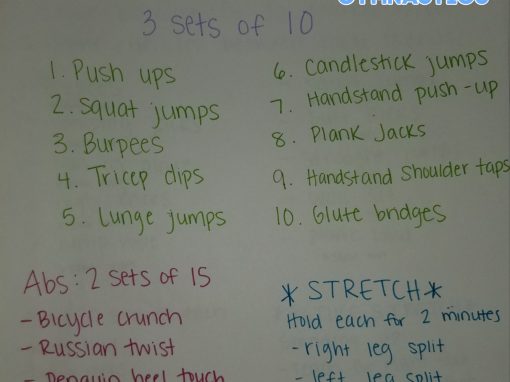 GYMNASTICS
3 sets of 10
1. Push ups
2. Squat jumps
3. Burpees
4. Tricep dips
5. Lunge jumps
6. Candlestick jumps
7. Handstand push-up
8. Plank Jacks
9. Handstand Shoulder taps
10. Glute bridges
Abs: 2 sets of 15
- Bicycle crunch
- Russian twist
- Penguin heel touch
* STRETCH *
Hold each for 2 minutes
- right leg split
- left leg split